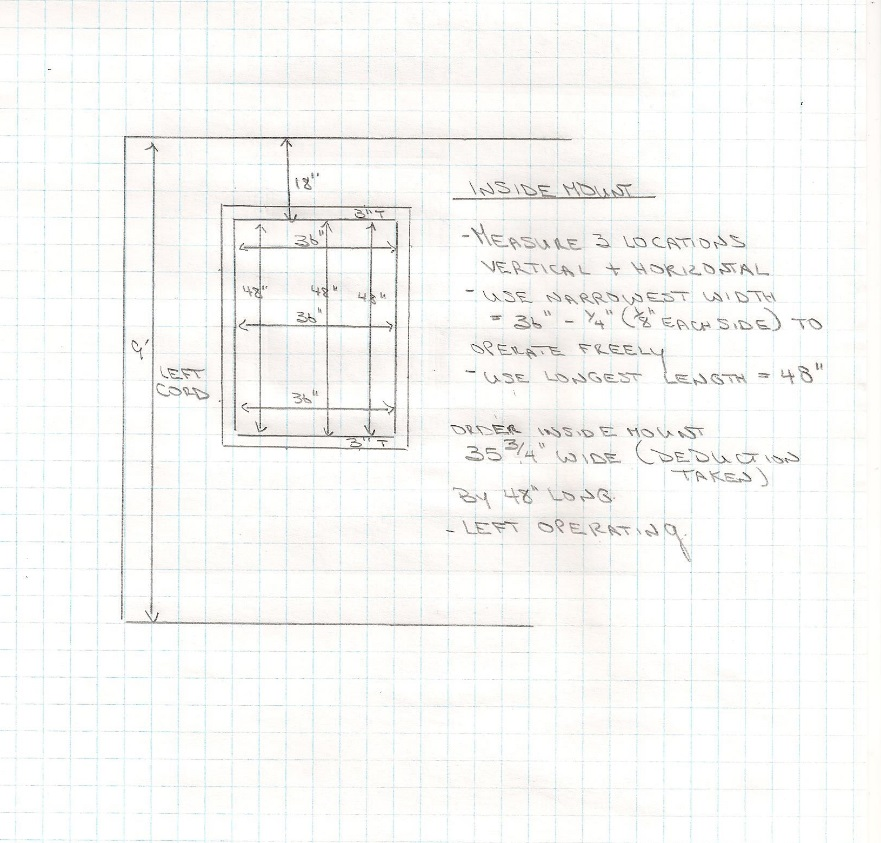 18"
3" T
36"
48" 48" 48"
36"
9'
LEFT
CORD
36"
3" T
INSIDE MOUNT
-MEASURE 3 LOCATIONS
VERTICAL + HORIZONTAL
-USE NARROWEST WIDTH
= 36" - 1/4" (1/8" EACH SIDE) TO
OPERATE FREELY
-USE LONGEST LENGTH = 48"
ORDER INSIDE MOUNT
35 3/4" WIDE (DEDUCTION
TAKEN)
BY 48" LONG.
- LEFT OPERATING.